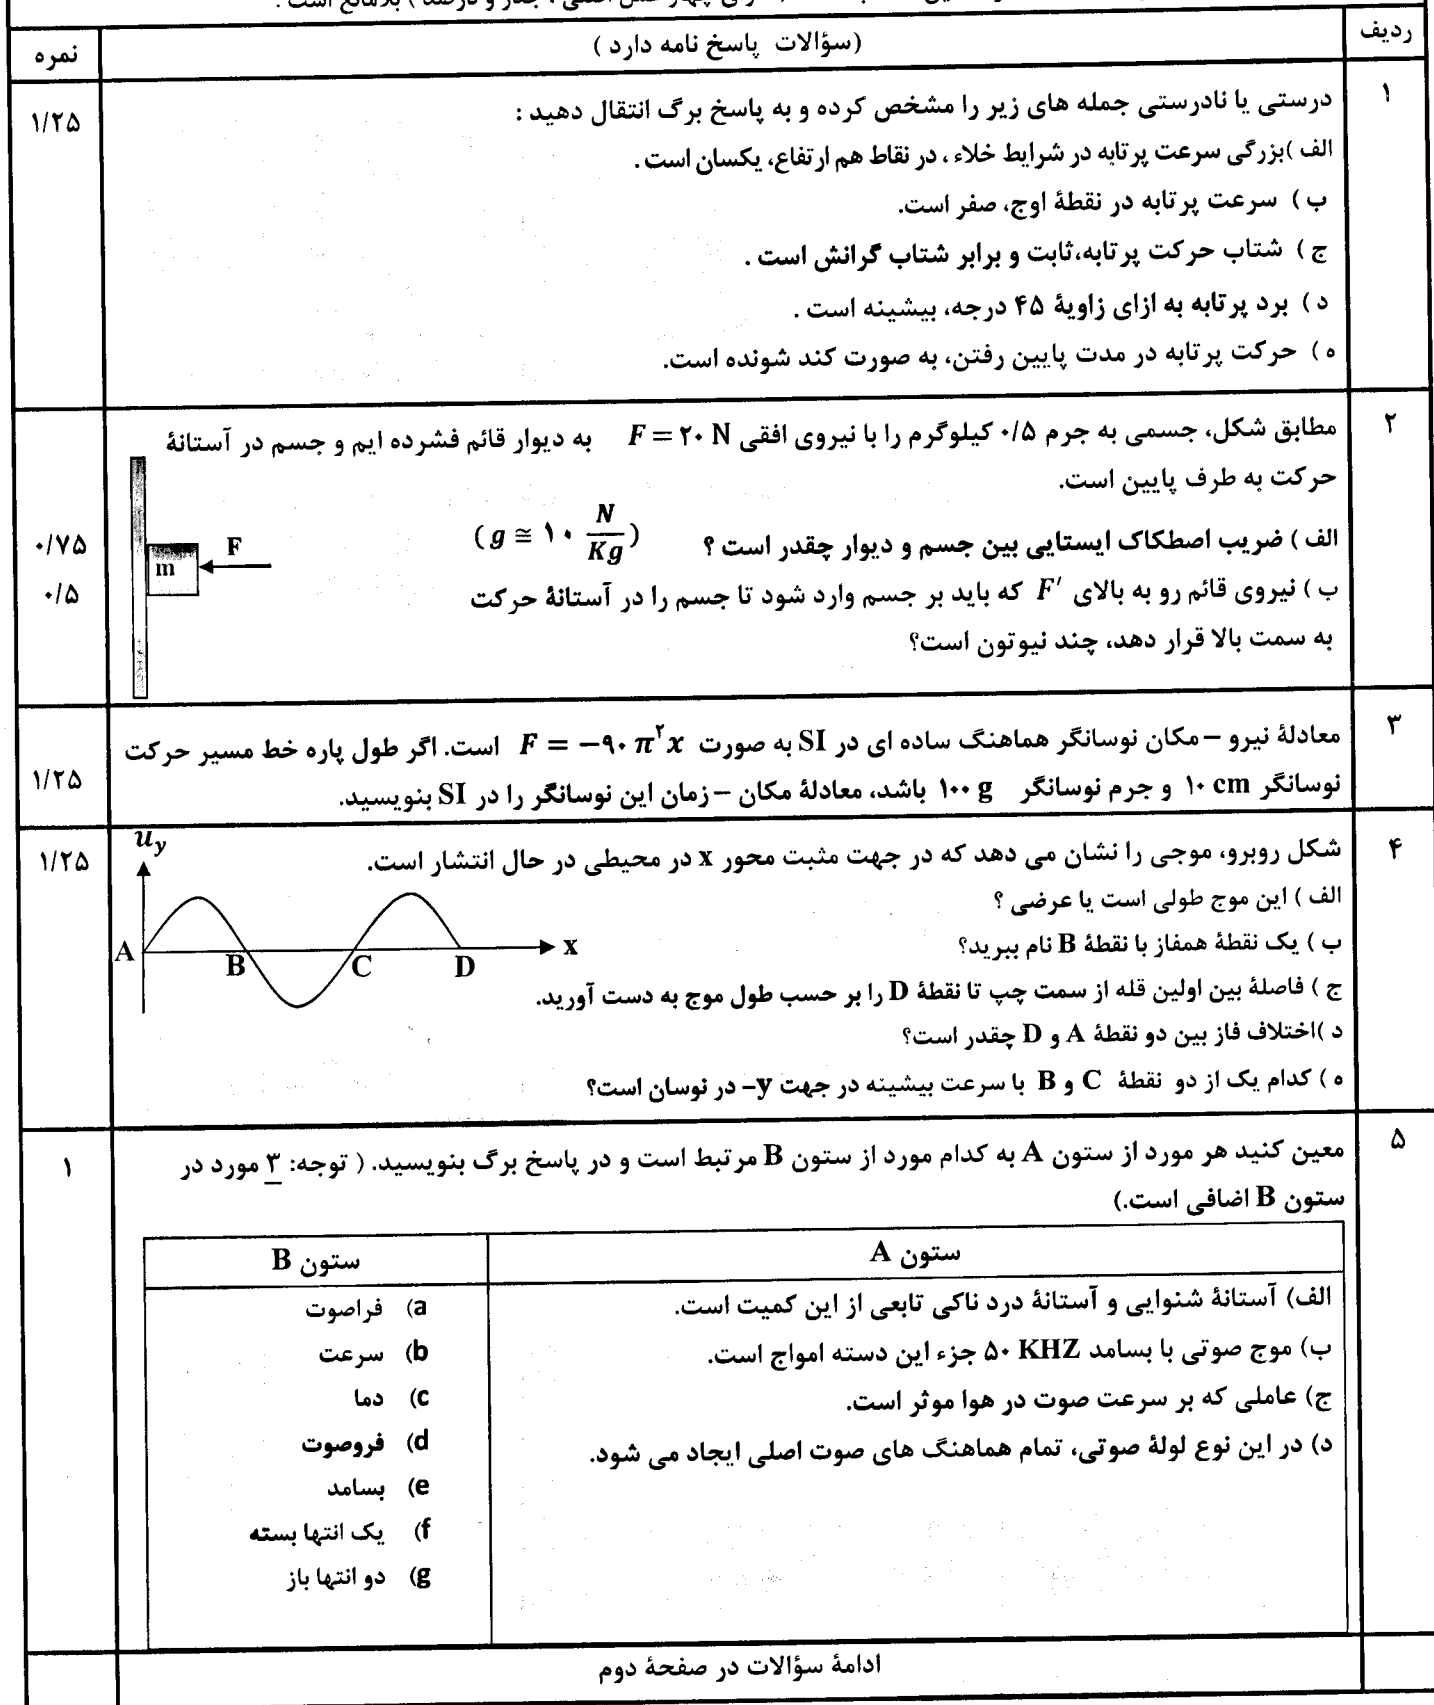 ردیف
(سؤالات پاسخ نامه دارد )
نمره
۱
درستی یا نادرستی جمله های زیر را مشخص کرده و به پاسخ برگ انتقال دهید :
۱/۲۵
الف )بزرگی سرعت پرتابه در شرایط خلاء ، در نقاط هم ارتفاع، یکسان است .
ب ) سرعت پرتابه در نقطۀ اوج، صفر است.
ج ) شتاب حرکت پرتابه،ثابت و برابر شتاب گرانش است .
د ) برد پرتابه به ازای زاویۀ ۴۵ درجه، بیشینه است .
ه ) حرکت پرتابه در مدت پایین رفتن، به صورت کند شونده است.
۲
مطابق شکل، جسمی به جرم ۰/۵ کیلوگرم را با نیروی افقی F = ۲۰ N به دیوار قائم فشرده ایم و جسم در آستانۀ
حرکت به طرف پایین است.
الف ) ضریب اصطکاک ایستایی بین جسم و دیوار چقدر است ؟ (g ≅ ۱۰ N/Kg)
۰/۷۵
ب ) نیروی قائم رو به بالای F′ که باید بر جسم وارد شود تا جسم را در آستانۀ حرکت
۰/۵
به سمت بالا قرار دهد، چند نیوتون است؟
F
m
۳
معادلۀ نیرو – مکان نوسانگر هماهنگ ساده ای در SI به صورت F = −۹۰ π²x است. اگر طول پاره خط مسیر حرکت
۱/۲۵
نوسانگر ۱۰ cm و جرم نوسانگر ۱۰۰ g باشد، معادلۀ مکان – زمان این نوسانگر را در SI بنویسید.
۴
شکل روبرو، موجی را نشان می دهد که در جهت مثبت محور x در محیطی در حال انتشار است.
۱/۲۵
الف ) این موج طولی است یا عرضی ؟
ب ) یک نقطۀ همفاز با نقطۀ B نام ببرید؟
ج ) فاصلۀ بین اولین قله از سمت چپ تا نقطۀ D را بر حسب طول موج به دست آورید.
د )اختلاف فاز بین دو نقطۀ A و D چقدر است؟
ه ) کدام یک از دو نقطۀ C و B با سرعت بیشینه در جهت y- در نوسان است؟
u_y
A
B
C
D
x
۵
معین کنید هر مورد از ستون A به کدام مورد از ستون B مرتبط است و در پاسخ برگ بنویسید. ( توجه: ۳ مورد در
۱
ستون B اضافی است.)
ستون A
ستون B
الف) آستانۀ شنوایی و آستانۀ درد ناکی تابعی از این کمیت است.
ب) موج صوتی با بسامد ۵۰ KHZ جزء این دسته امواج است.
ج) عاملی که بر سرعت صوت در هوا موثر است.
د) در این نوع لولۀ صوتی، تمام هماهنگ های صوت اصلی ایجاد می شود.
a) فراصوت
b) سرعت
c) دما
d) فروصوت
e) بسامد
f) یک انتها بسته
g) دو انتها باز
ادامۀ سؤالات در صفحۀ دوم